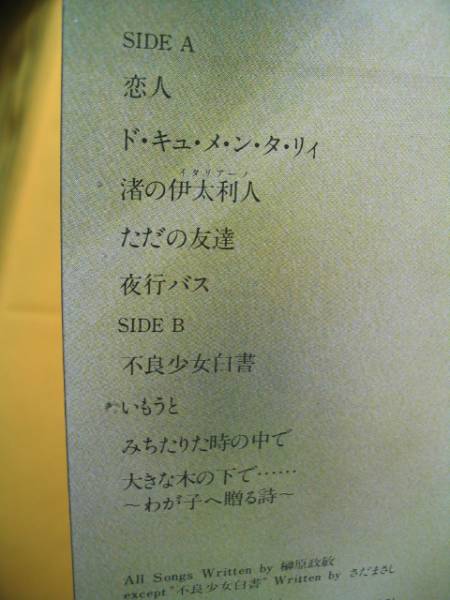 SIDE A
恋人
ド・キュ・メ・ン・タ・リィ
イタリアーノ
渚の伊太利人
ただの友達
夜行バス
SIDE B
不良少女白書
いもうと
みちたりた時の中で
大きな木の下で……
〜わが子へ贈る詩〜
All Songs Written by 榊原政敏
except "不良少女白書" Written by さだまさし